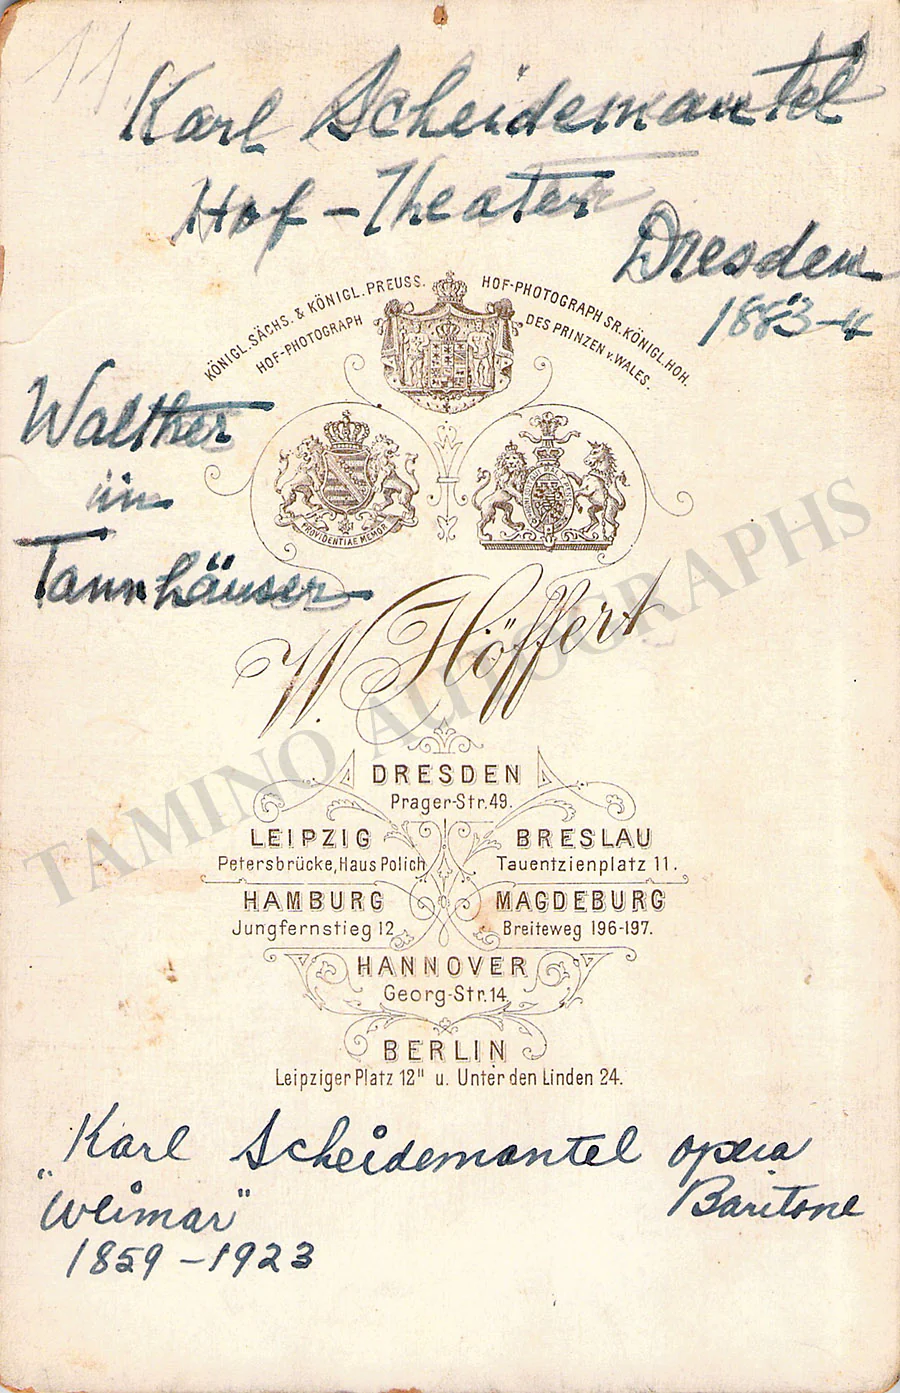 11
Karl Scheidemantel
Hof-Theater
Dresden
1883-4
KÖNIGL. SÄCHS. & KÖNIGL. PREUSS.
HOF-PHOTOGRAPH
HOF-PHOTOGRAPH SR. KÖNIGL. HOH.
DES PRINZEN v. WALES.
Walther
in
Tannhäuser
PROVIDENTIAE MEMOR
W. Höffert
TAMINO AUTOGRAPHS
DRESDEN
Prager-Str. 49.
LEIPZIG
Petersbrücke, Haus Polich
BRESLAU
Tauentzienplatz 11.
HAMBURG
Jungfernstieg 12
MAGDEBURG
Breiteweg 196-197.
HANNOVER
Georg-Str. 14
BERLIN
Leipziger Platz 12" u. Unter den Linden 24.
Karl Scheidemantel opera
"Weimar" Baritone
1859-1923